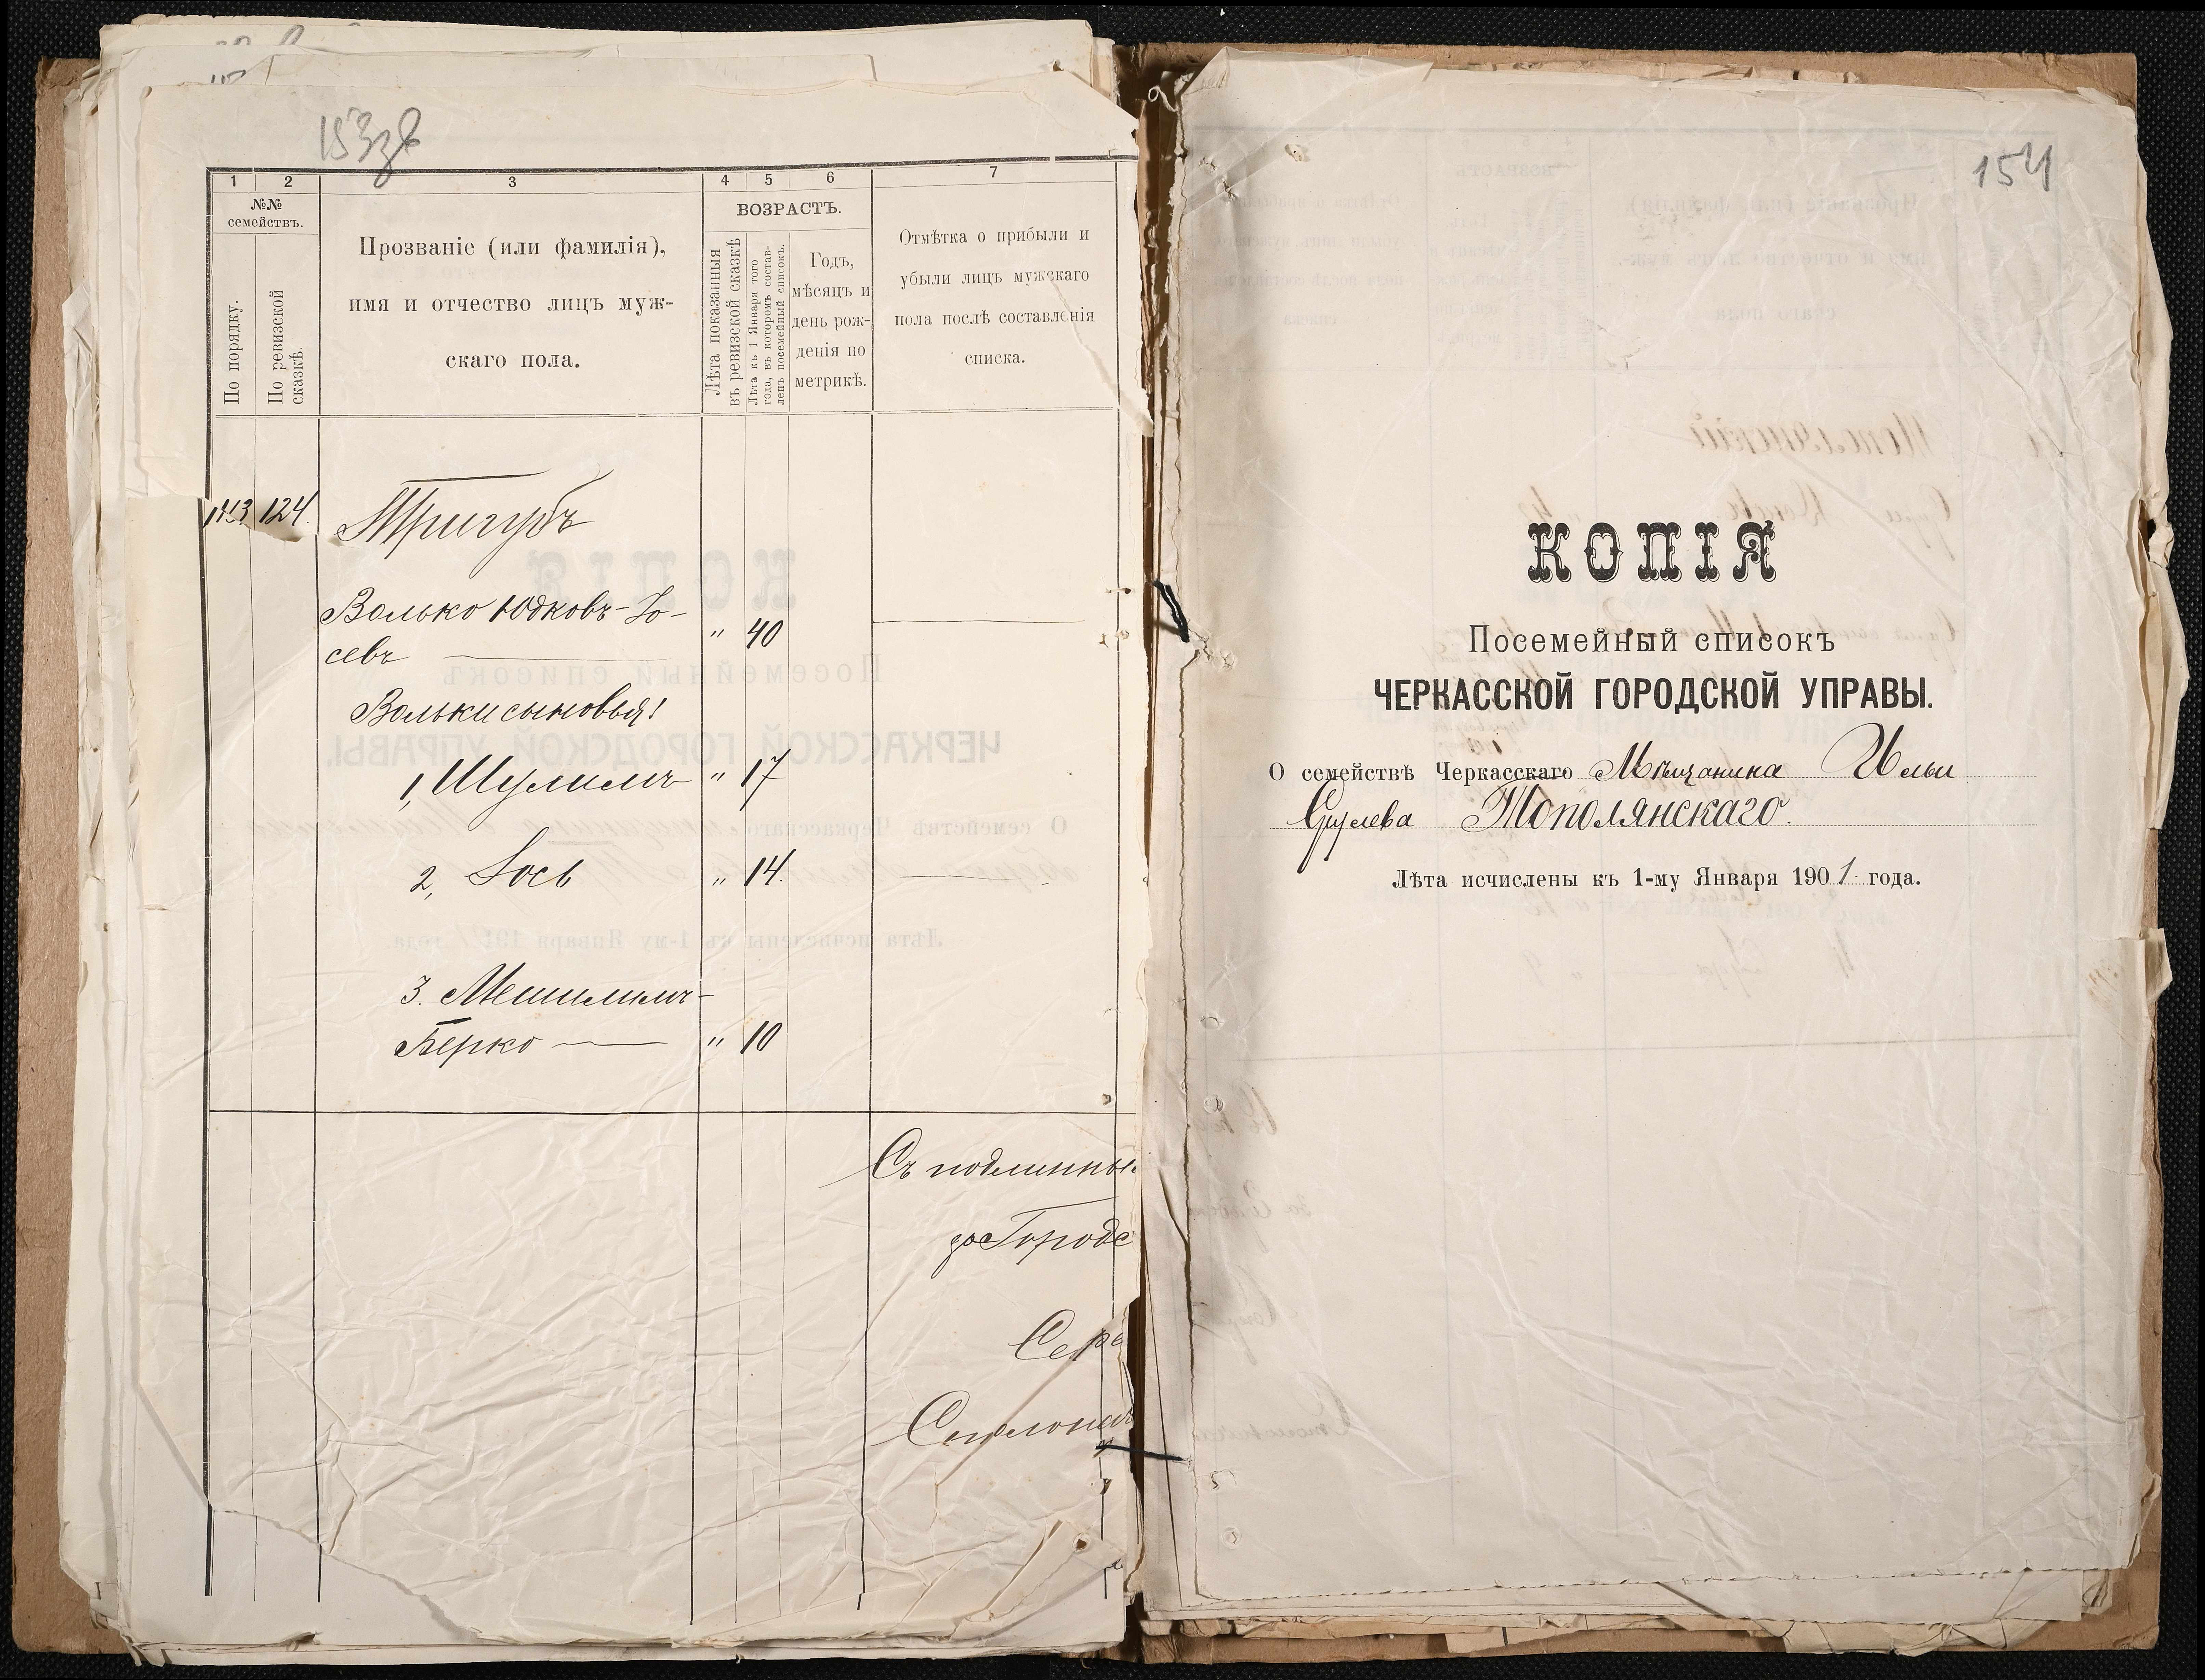 153 об
1 2 3 4 5 6 7
№№ семействъ.
По порядку.
По ревизской сказкѣ.
Прозваніе (или фамилія),
имя и отчество лицъ муж-
скаго пола.
ВОЗРАСТЪ.
Лѣта показанныя въ ревизской сказкѣ
Лѣта къ 1 Января того года, въ которомъ состав- ленъ посемейный списокъ.
Годъ,
мѣсяцъ и
день рож-
денія по
метрикѣ.
Отмѣтка о прибыли и
убыли лицъ мужскаго
пола послѣ составленія
списка.
124. Тригубъ
Волько Юдковъ-Іо-
севъ " 40
Вольки сыновья:
1, Шулимъ " 17
2, Іось " 14.
3. Мешилимъ-
Берко " 10
Съ подлинны
Городс
Секре
Столонач
154
КОПІЯ
Посемейный списокъ
ЧЕРКАССКОЙ ГОРОДСКОЙ УПРАВЫ.
О семействѣ Черкасскаго Мѣщанина Ильи
Срулева Тополянскаго.
Лѣта исчислены къ 1-му Января 1901 года.